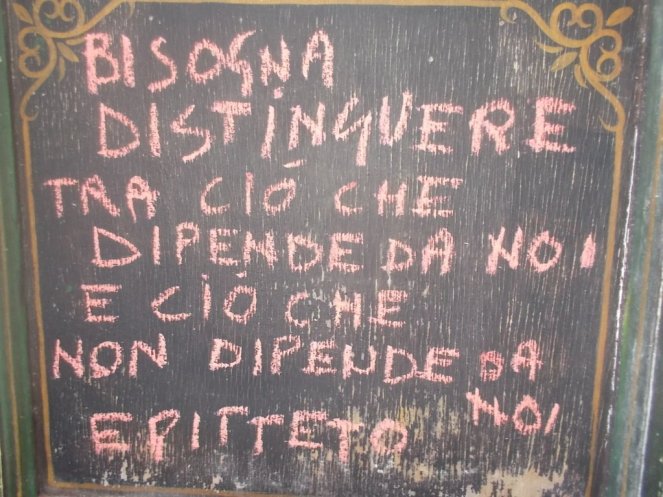 BISOGNA
DISTINGUERE
TRA CIÓ CHE
DIPENDE DA NOI
E CIÓ CHE
NON DIPENDE DA
NOI
EPITTETO